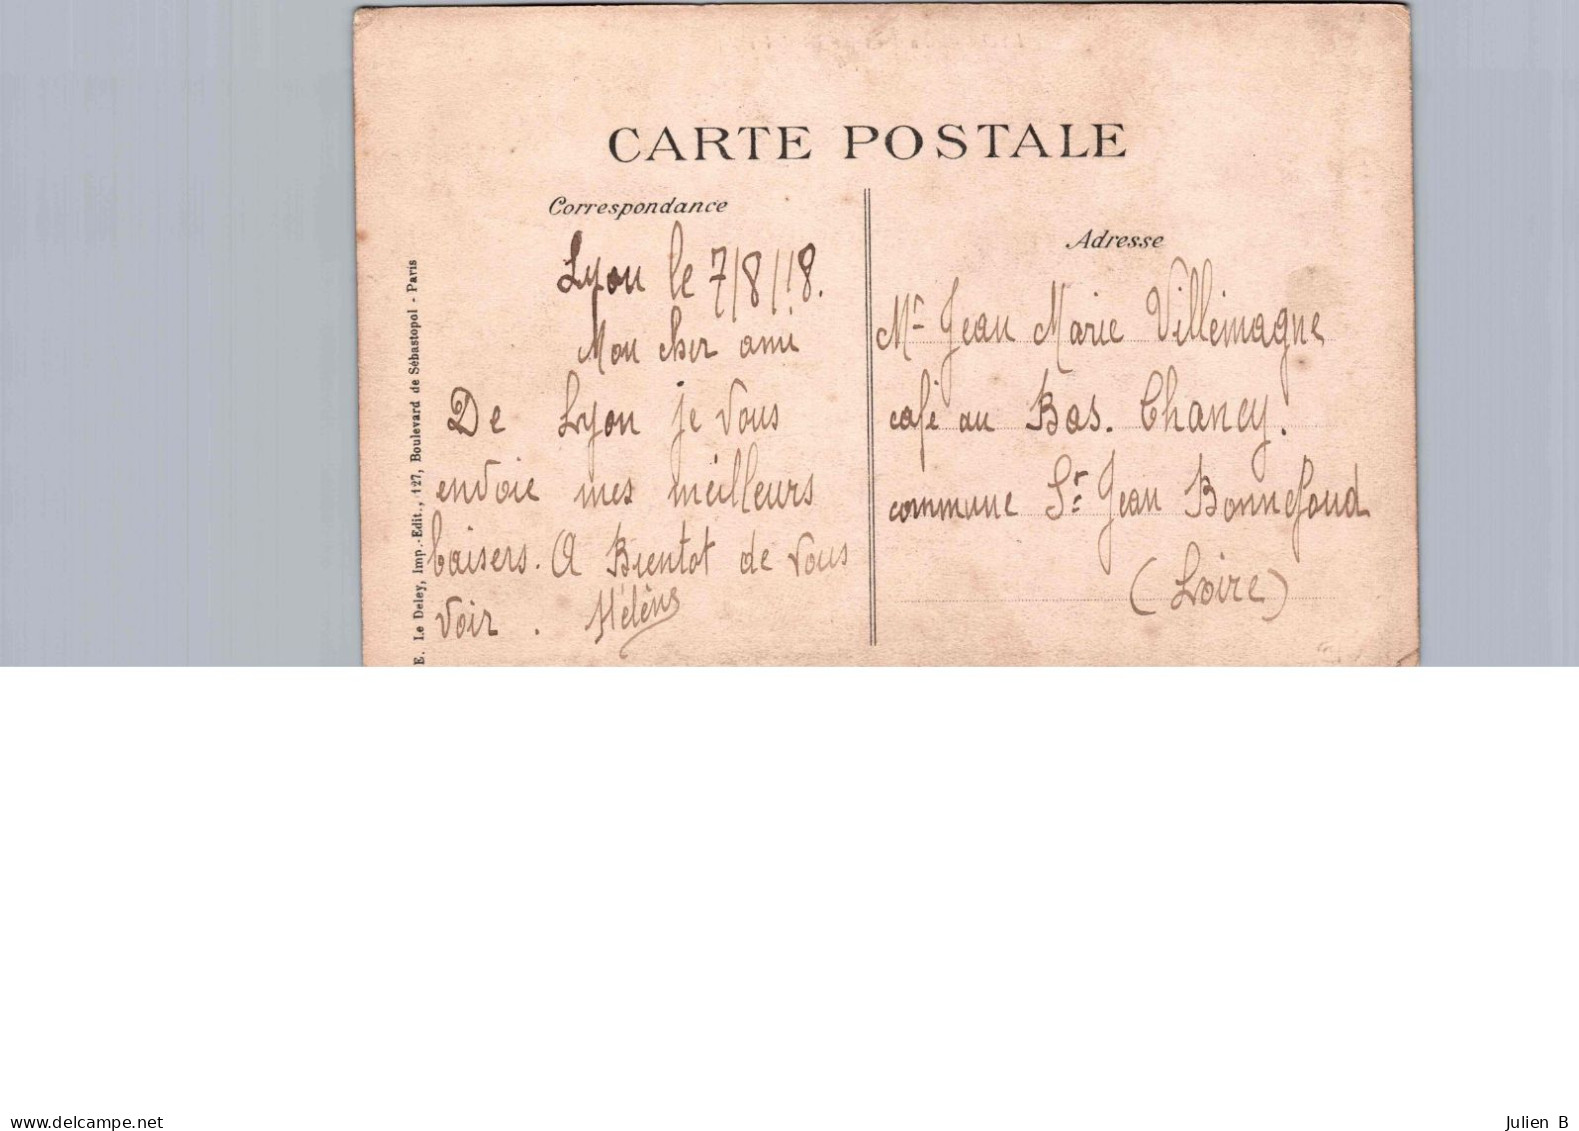 CARTE POSTALE
Correspondance
Lyon le 7/8/18.
Mon cher ami
De Lyon je vous
envoie mes meilleurs
baisers. A Bientot de vous
voir. Hélène
Adresse
Mr Jean Marie Villemagne
café au Bas. Chaney.
commune St Jean Bonnefond
(Loire)
E. Le Deley, Imp.-Edit., 127, Boulevard de Sébastopol - Paris
www.delcampe.net
Julien B